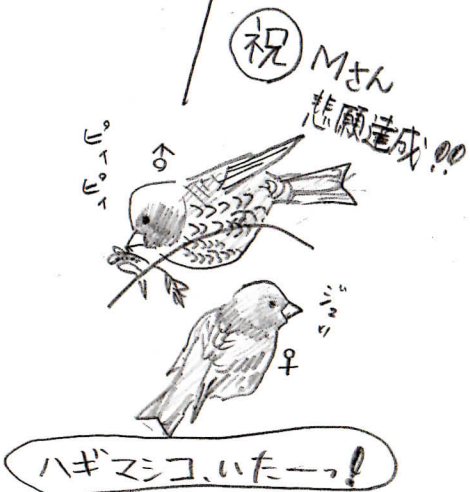 祝 Mさん
悲願達成!!
ピィ
ピィ
♂
ジュリ
♀
ハギマシコ、いたーっ!